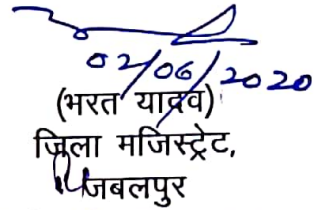 02/06/2020
(भरत यादव)
जिला मजिस्ट्रेट,
जबलपुर